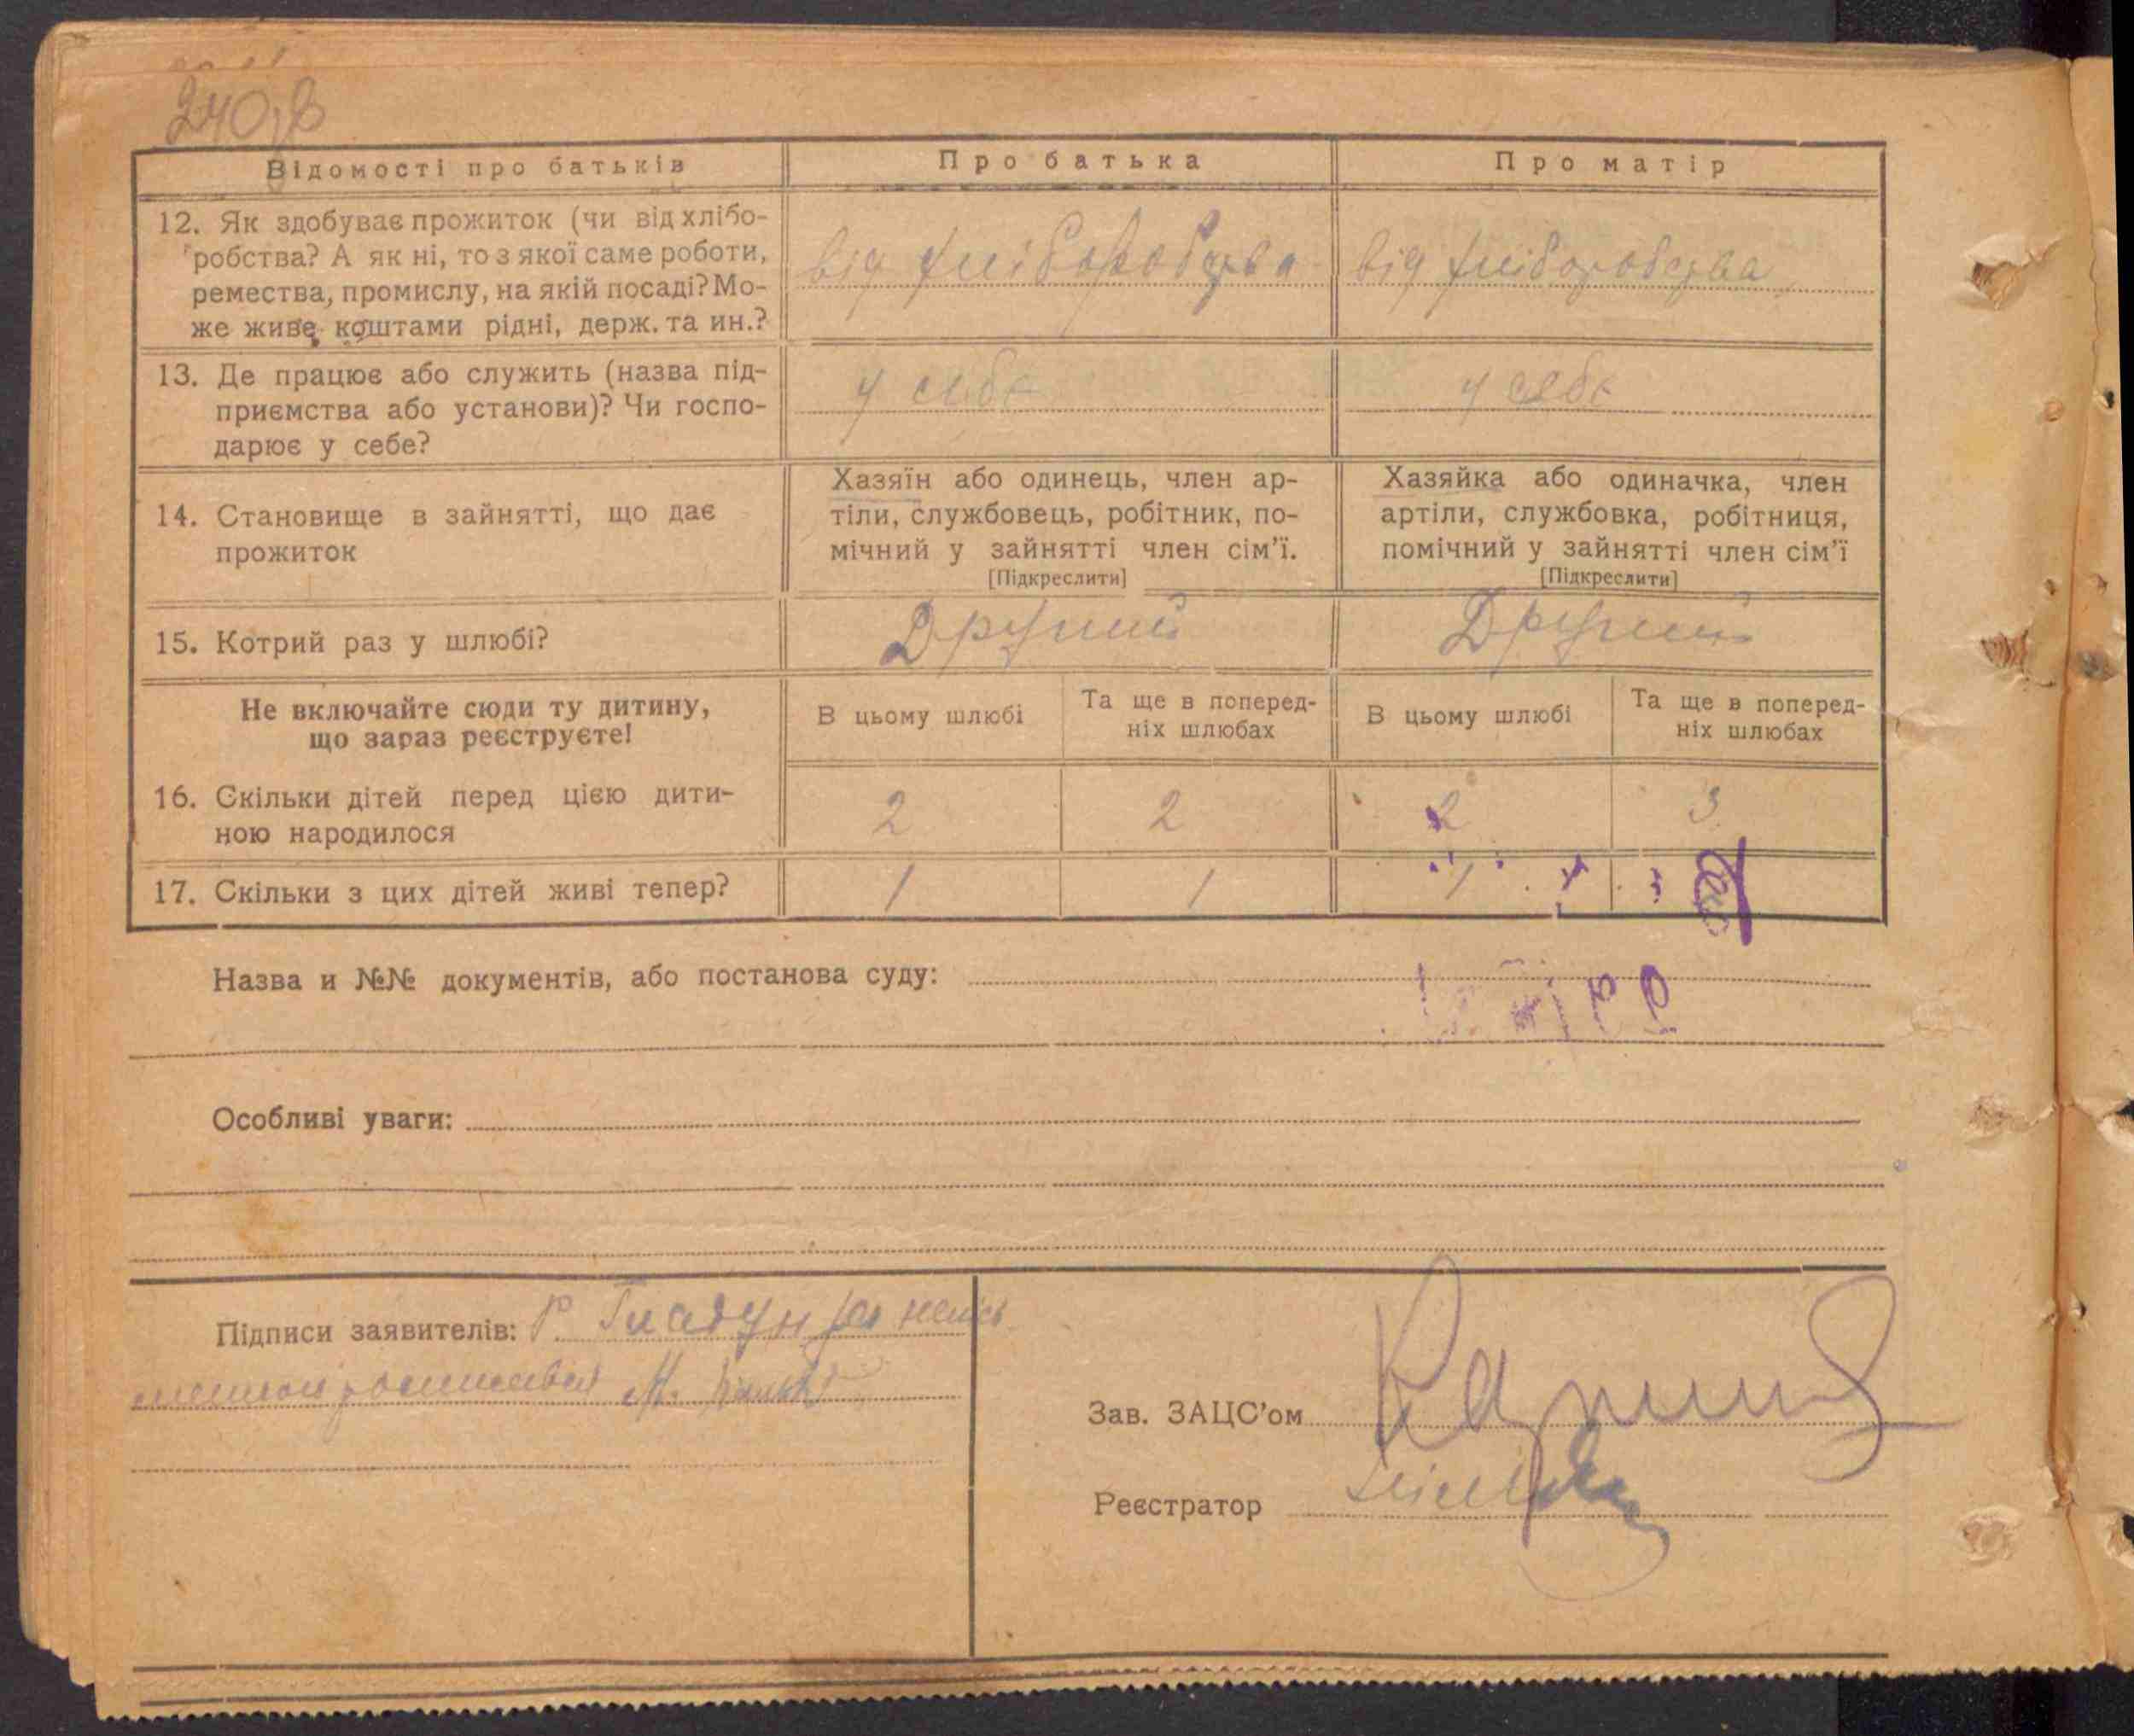 Відомості про батьків
Про батька
Про матір
12. Як здобуває прожиток (чи від хлібо-
робства? А як ні, то з якої саме роботи,
ремества, промислу, на якій посаді? Мо-
же живе коштами рідні, держ. та ин.?
від хліборобства
від хліборобства
13. Де працює або служить (назва під-
приємства або установи)? Чи госпо-
дарює у себе?
у себе
у себе
14. Становище в зайнятті, що дає
прожиток
Хазяїн або одинець, член ар-
тіли, службовець, робітник, по-
мічний у зайнятті член сім'ї.
[Підкреслити]
Хазяйка або одиначка, член
артіли, службовка, робітниця,
помічний у зайнятті член сім'ї
[Підкреслити]
15. Котрий раз у шлюбі?
Другий
Другий
Не включайте сюди ту дитину,
що зараз реєструєте!
В цьому шлюбі
Та ще в поперед-
ніх шлюбах
В цьому шлюбі
Та ще в поперед-
ніх шлюбах
16. Скільки дітей перед цією дити-
ною народилося
2
2
2
3
17. Скільки з цих дітей живі тепер?
1
1
1
Назва и №№ документів, або постанова суду:
Особливі уваги:
Підписи заявителів: Р. Гладун
М.
Зав. ЗАЦС'ом
Реєстратор